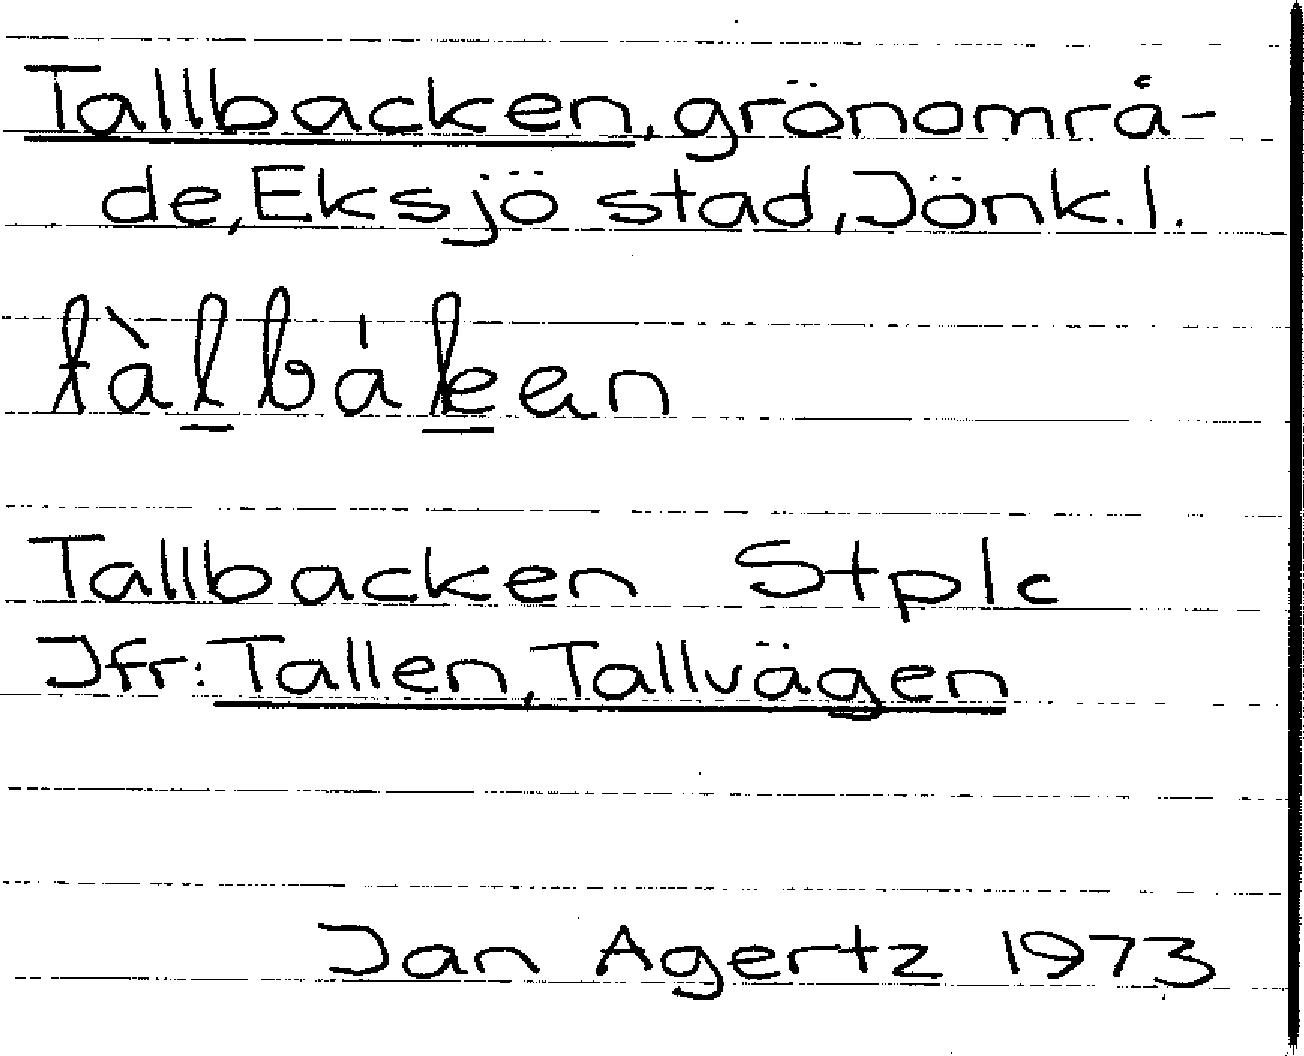 Tallbacken, grönområ-
de, Eksjö stad, Jönk. l.
tàlbáken
Tallbacken Stplc
Jfr: Tallen, Tallvägen
Jan Agertz 1973